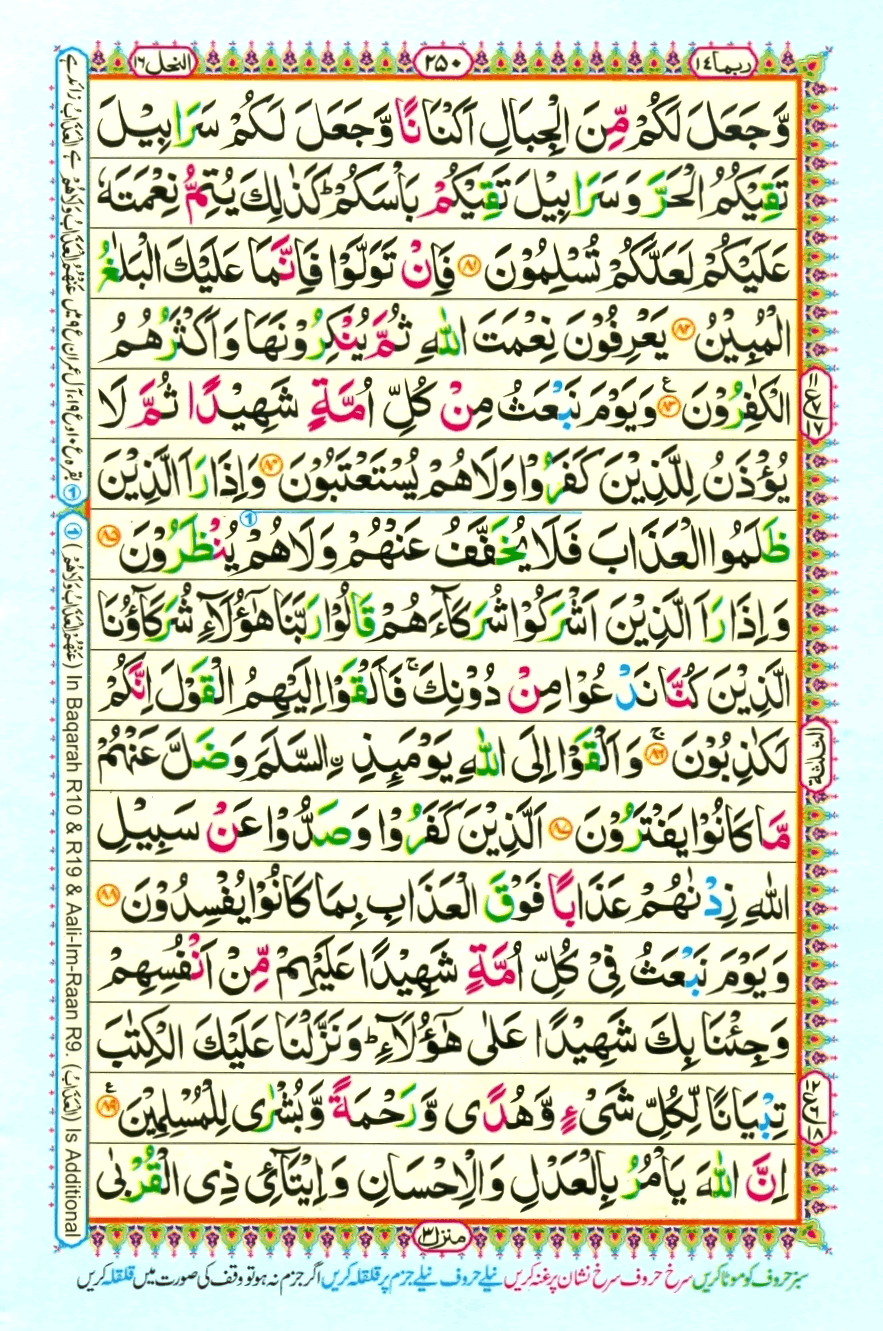 ربما ١٤
٢٥٠
النحل ١٦
وَّجَعَلَ لَكُمْ مِّنَ الْجِبَالِ اَكْنَانًا وَّجَعَلَ لَكُمْ سَرَابِيْلَ
تَقِيْكُمُ الْحَرَّ وَسَرَابِيْلَ تَقِيْكُمْ بَاْسَكُمْ ؕ كَذٰلِكَ يُتِمُّ نِعْمَتَهٗ
عَلَيْكُمْ لَعَلَّكُمْ تُسْلِمُوْنَ ﴿٨١﴾ فَاِنْ تَوَلَّوْا فَاِنَّمَا عَلَيْكَ الْبَلٰغُ
الْمُبِيْنُ ﴿٨٢﴾ يَعْرِفُوْنَ نِعْمَتَ اللّٰهِ ثُمَّ يُنْكِرُوْنَهَا وَاَكْثَرُهُمُ
الْكٰفِرُوْنَ ﴿٨٣﴾ ع وَيَوْمَ نَبْعَثُ مِنْ كُلِّ اُمَّةٍ شَهِيْدًا ثُمَّ لَا
يُؤْذَنُ لِلَّذِيْنَ كَفَرُوْا وَلَا هُمْ يُسْتَعْتَبُوْنَ ﴿٨٤﴾ وَاِذَا رَاَ الَّذِيْنَ
ظَلَمُوا الْعَذَابَ فَلَا يُخَفَّفُ عَنْهُمْ وَلَا هُمْ يُنْظَرُوْنَ ﴿٨٥﴾
وَاِذَا رَاَ الَّذِيْنَ اَشْرَكُوْا شُرَكَآءَهُمْ قَالُوْا رَبَّنَا هٰٓؤُلَآءِ شُرَكَآؤُنَا
الَّذِيْنَ كُنَّا نَدْعُوْا مِنْ دُوْنِكَ ۚ فَاَلْقَوْا اِلَيْهِمُ الْقَوْلَ اِنَّكُمْ
لَكٰذِبُوْنَ ﴿٨٦﴾ ۚ وَاَلْقَوْا اِلَى اللّٰهِ يَوْمَئِذِ ۨالسَّلَمَ وَضَلَّ عَنْهُمْ
مَّا كَانُوْا يَفْتَرُوْنَ ﴿٨٧﴾ اَلَّذِيْنَ كَفَرُوْا وَصَدُّوْا عَنْ سَبِيْلِ
اللّٰهِ زِدْنٰهُمْ عَذَابًا فَوْقَ الْعَذَابِ بِمَا كَانُوْا يُفْسِدُوْنَ ﴿٨٨﴾
وَيَوْمَ نَبْعَثُ فِيْ كُلِّ اُمَّةٍ شَهِيْدًا عَلَيْهِمْ مِّنْ اَنْفُسِهِمْ
وَجِئْنَا بِكَ شَهِيْدًا عَلٰى هٰٓؤُلَآءِ ؕ وَنَزَّلْنَا عَلَيْكَ الْكِتٰبَ
تِبْيَانًا لِّكُلِّ شَيْءٍ وَّهُدًى وَّرَحْمَةً وَّبُشْرٰى لِلْمُسْلِمِيْنَ ﴿٨٩﴾ ع
اِنَّ اللّٰهَ يَاْمُرُ بِالْعَدْلِ وَالْاِحْسَانِ وَاِيْتَآئِ ذِى الْقُرْبٰى
الثلثة
منزل ٣
سبز حروف کو موٹا کریں سرخ حروف سرخ نشان پر غنہ کریں نیلے حروف نیلے جزم پر قلقلہ کریں اگر جزم نہ ہو تو وقف کی صورت میں قلقلہ کریں
① (عَنْهُمُ الْعَذَابُ وَلَاهُمْ) In Baqarah R10 & R19 & Aali-Im-Raan R9. (الْعَذَابُ) Is Additional